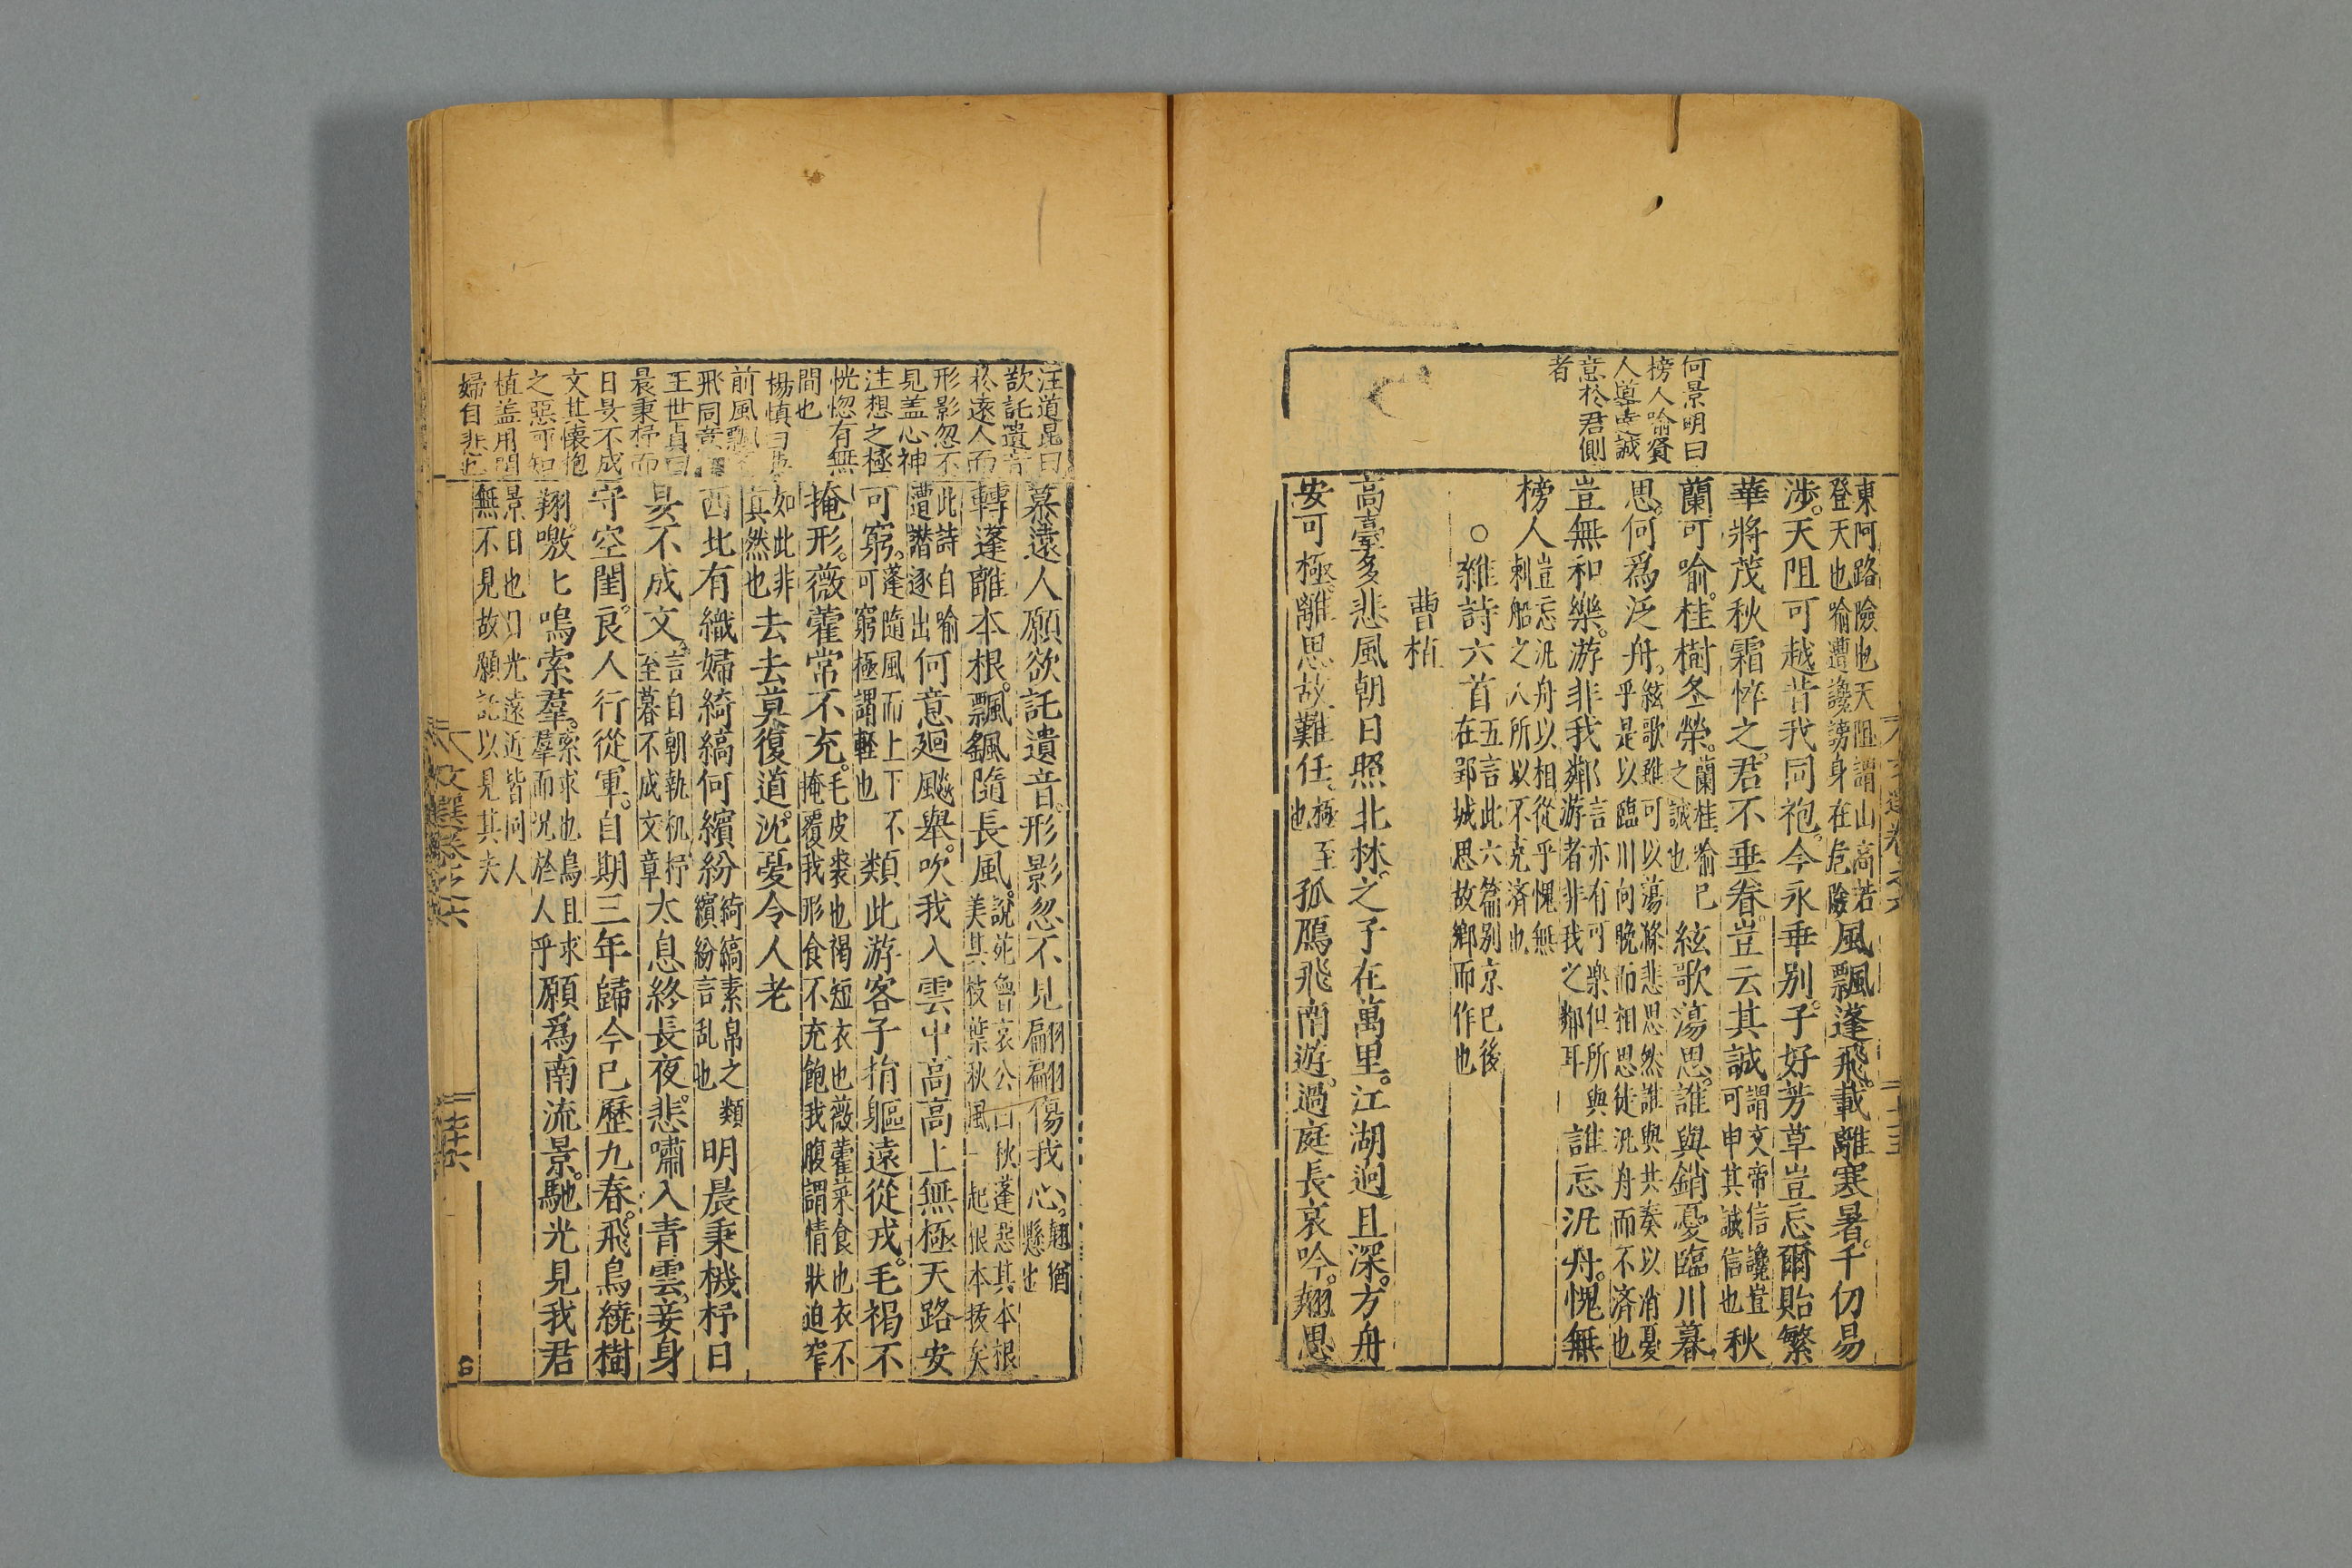 何景明曰
榜人喻賢
人導吏誠
意於君側
者
東阿路險也天阻謂山高若
登天也喻遭讒謗身在危險
風飄蓬飛載離寒暑千仞易
涉天阻可越昔我同袍今永乖别子好芳草豈忘爾貽繁
華將茂秋霜悴之君不垂眷豈云其誠
謂文帝信讒豈
可申其誠信也
秋
蘭可喻桂樹冬榮
蘭桂喻已
之誠也
絃歌蕩思誰與銷憂臨川暮
思何爲泛舟
絃歌雖可以蕩滌悲思然誰與共奏以消憂
乎是以臨川向晚而相思徒汎舟而不済也
豈無和樂游非我鄰
言亦有可樂但所與
游者非我之鄰耳
誰忘汎舟愧無
榜人
豈忘汎舟以相從乎愧無
刺船之人所以不克済也
○雜詩六首
五言此六篇别京已後
在郢城思故鄉而作也
曹植
高臺多悲風朝日照北林之子在萬里江湖迥且深方舟
安可極離思故難任
極至
也
孤鴈飛南遊過庭長哀吟翹思
汪道昆曰
欲託遺音
於遠人而
形影忽不
見盖心神
注想之極
恍惚有無
間也
楊慎曰與
前風飄蓬
飛同意
王世貞曰
晨秉杼而
日昃不成
文其懷抱
之惡可知
植盖用閨
婦自悲也
慕遠人願欲託遺音形影忽不見翩翩傷我心
翹猶
懸也
轉蓬離本根飄颻隨長風
說苑魯哀公曰秋蓬惡其本根
美其枝葉秋風一起恨本抜矣
此詩自喻
遭譖逐出
何意廻飈舉吹我入雲中高高上無極天路安
可窮
蓬隨風而上下不
可窮極謂輕也
類此游客子捐軀遠從戎毛褐不
掩形薇藿常不充
毛皮裘也褐短衣也薇藿菜食也衣不
掩覆我形食不充飽我腹謂情狀迫窄
如此非
其然也
去去莫復道沈憂令人老
西北有織婦綺縞何繽紛
綺縞素帛之類
繽紛言乱也
明晨秉機杼日
昃不成文
言自朝執机杼
至暮不成文章
太息終長夜悲嘯入青雲妾身
守空閨良人行從軍自期三年歸今已歷九春飛鳥繞樹
翔噭匕鳴索羣
索求也鳥且求
羣而况於人乎
願爲南流景馳光見我君
景日也日光遠近皆同人
無不見故願託以見其夫
文選卷之六
二十六